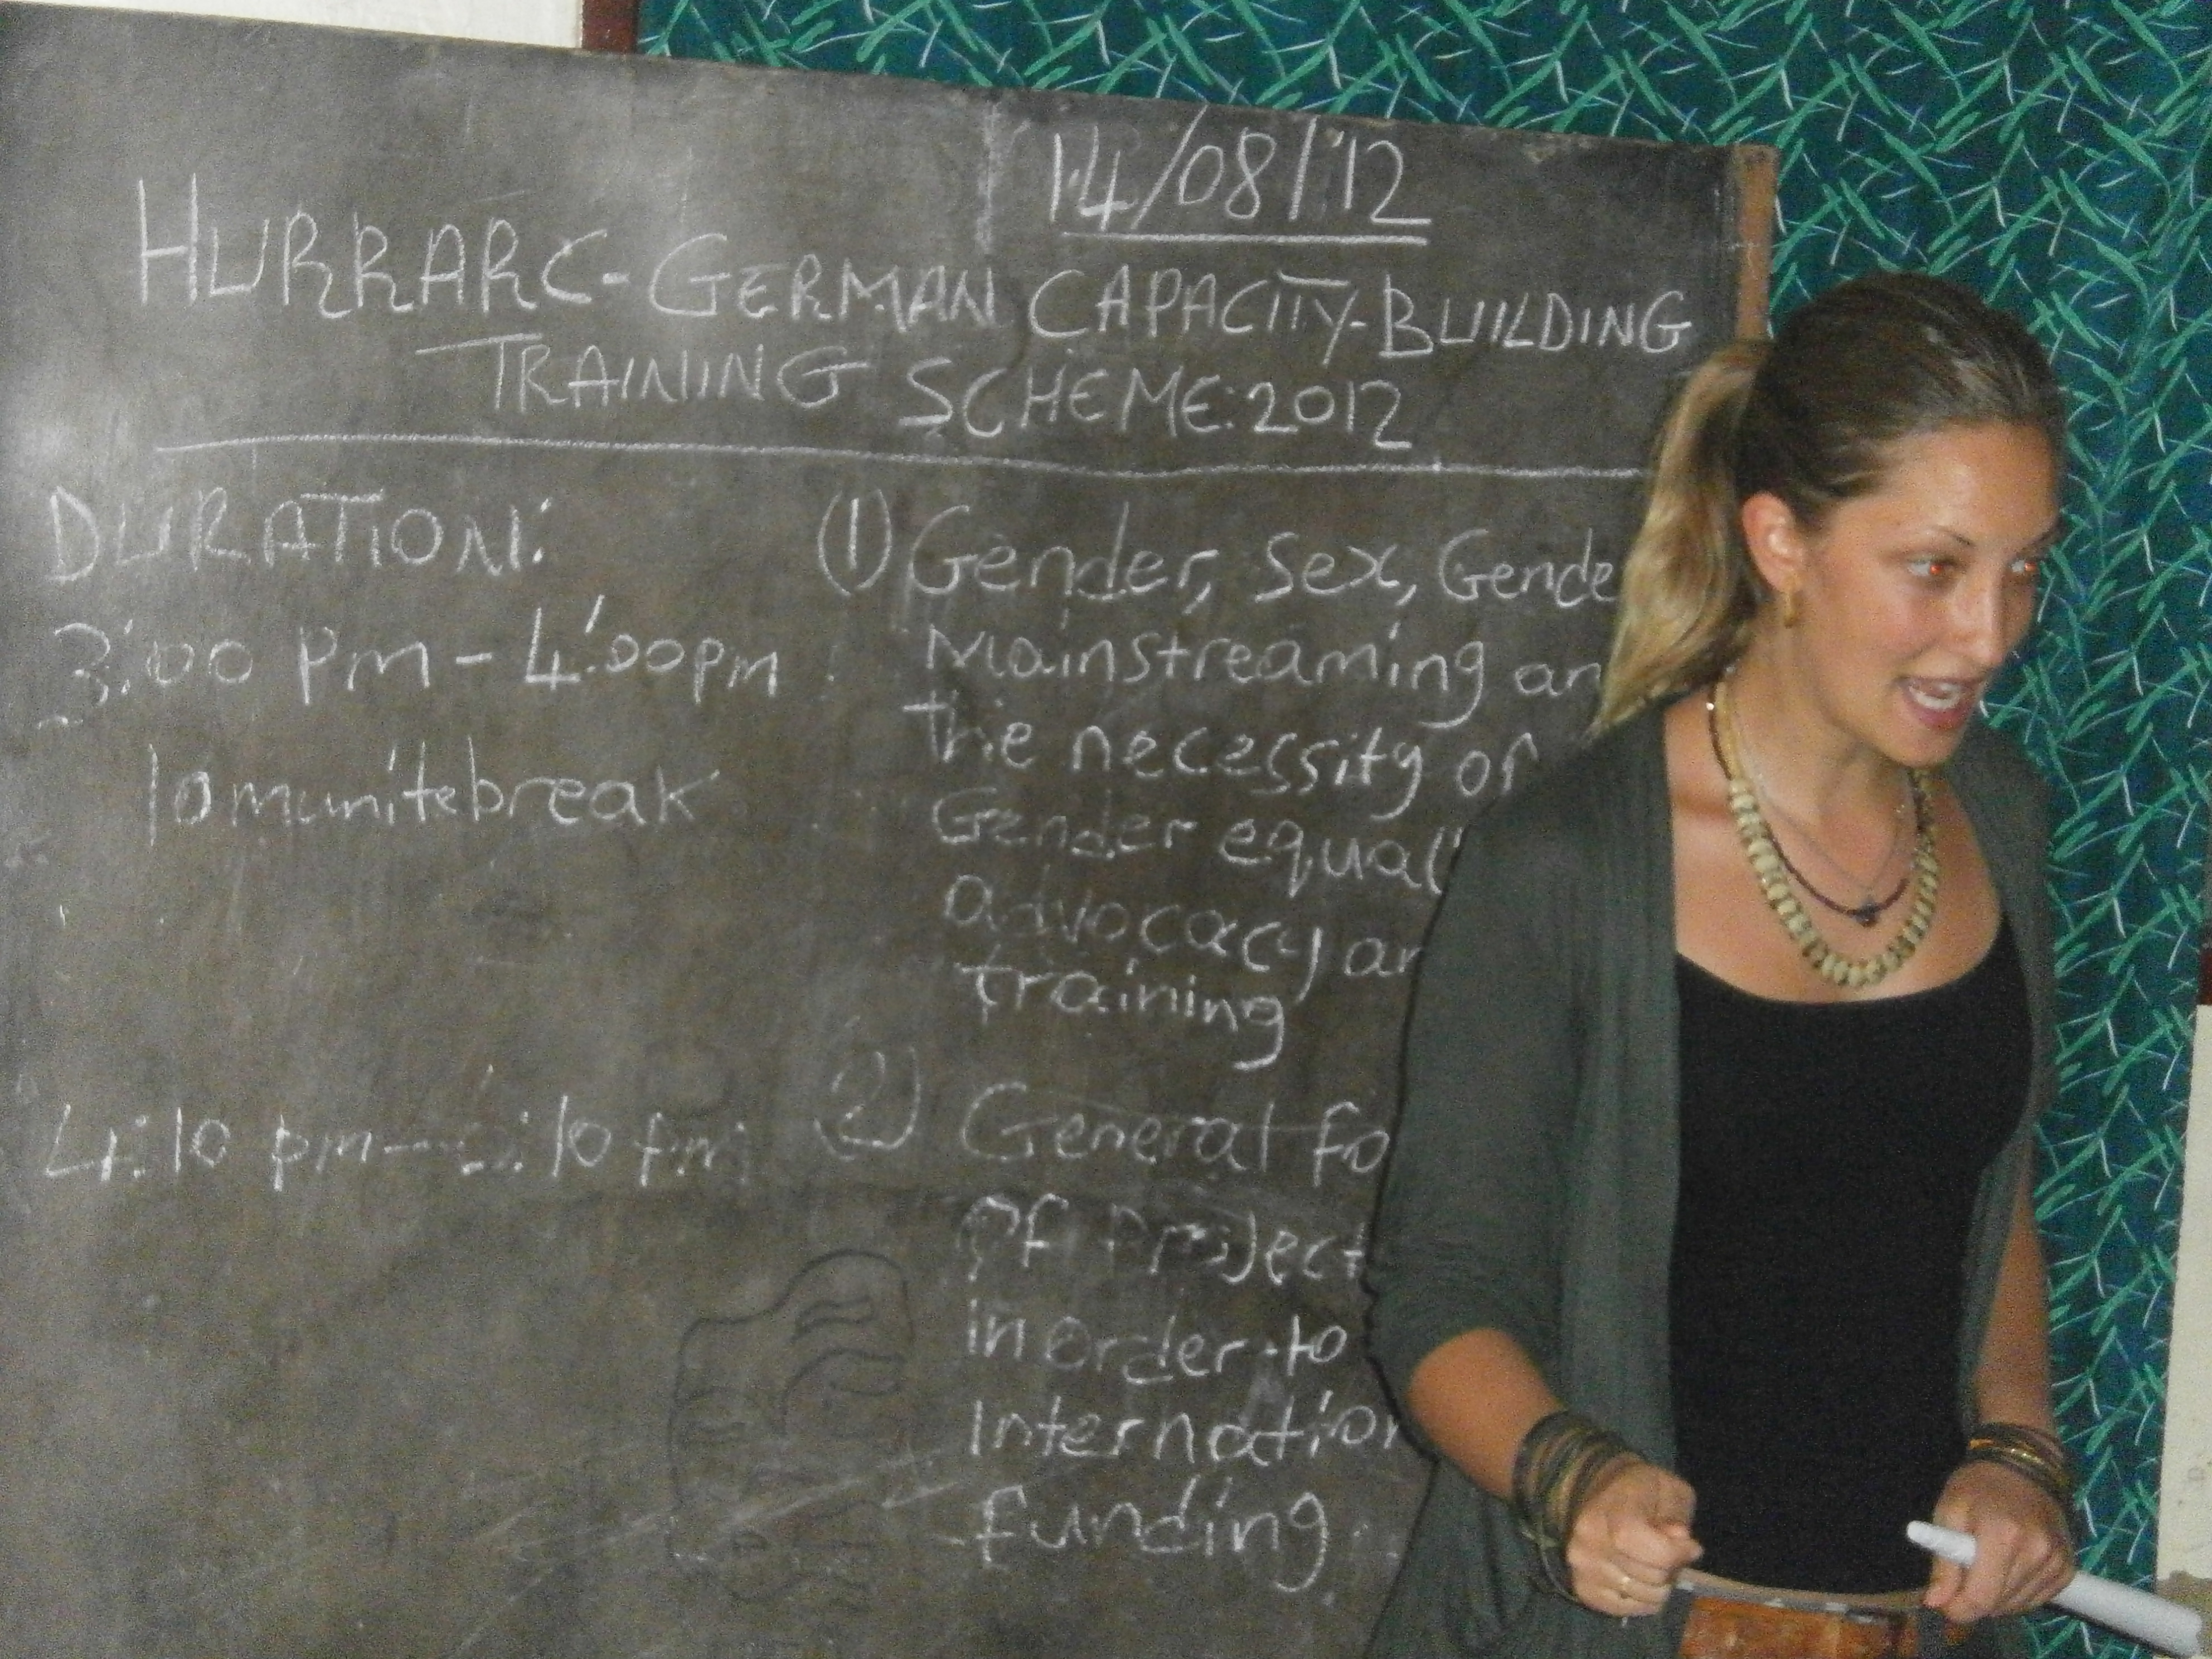 14/08/'12
HURRARC-GERMAN CAPACITY-BUILDING
TRAINING SCHEME:2012
DURATION:
3:00 pm - 4:00pm
10munitebreak
4:10 pm - :10 pm
(1) Gender, Sex, Gende
Mainstreaming an
the necessity of
Gender equal
advocacy an
training
(2) General fo
of Project
in order to
Internation
funding